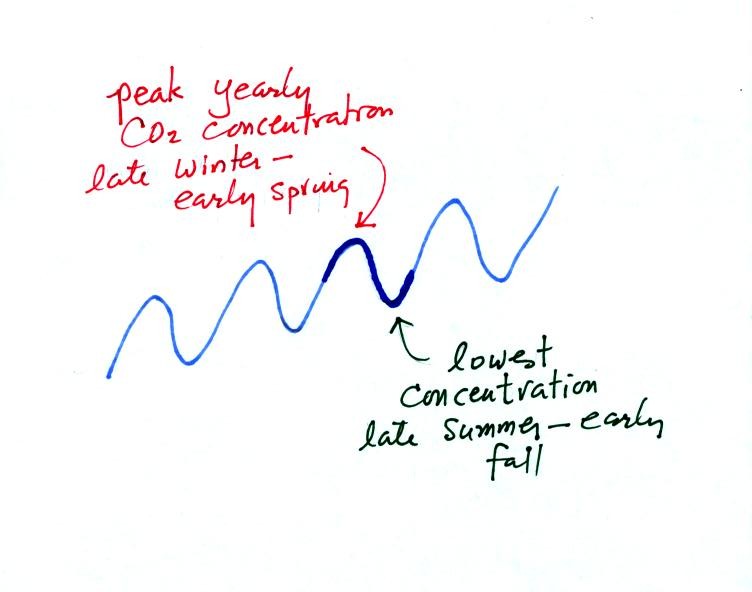 peak yearly
CO2 concentration
late winter -
early spring
lowest
concentration
late summer - early
fall